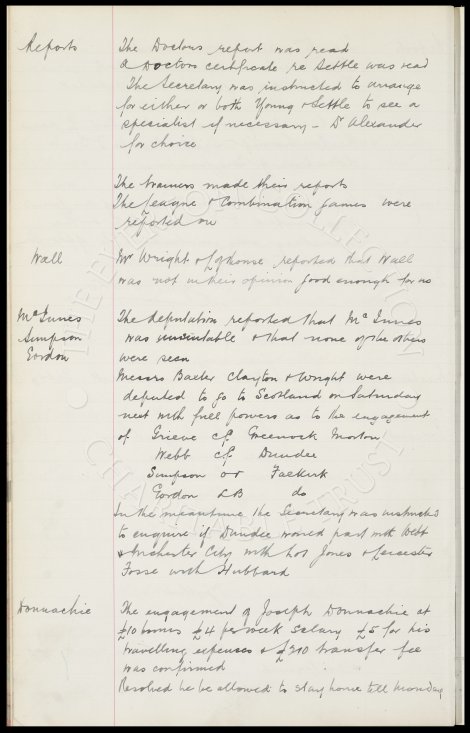 Reports
The Doctors report was read
A Doctors certificate re Settle was read
The Secretary was instructed to arrange
for either or both Young & Settle to see a
specialist if necessary - Dr Alexander
for choice
The trainers made their reports
The League & Combination games were
reported on
Wall
Mr Wright & reported that Wall
was not in their opinion good enough for us
McInnes
Simpson
Gordon
The deputation reported that McInnes
was unsuitable & that none of the others
were seen
Messrs Baxter Clayton & Wright were
deputed to go to Scotland on Saturday
next with full powers as to the engagement
of Grieve cf Greenock Morton
Webb cf Dundee
Simpson or Falkirk
Gordon LB do
In the meantime the Secretary was instructed
to enquire if Dundee would part with Webb
Manchester City with Lot Jones & Leicester
Fosse with Hubbard
Donnachie
The engagement of Joseph Donnachie at
£10 bonus £4 per week salary £5 for his
travelling expenses & transfer fee
was confirmed
Resolved he be allowed to stay home till Monday
THE EVERTON COLLECTION
CHARITABLE TRUST